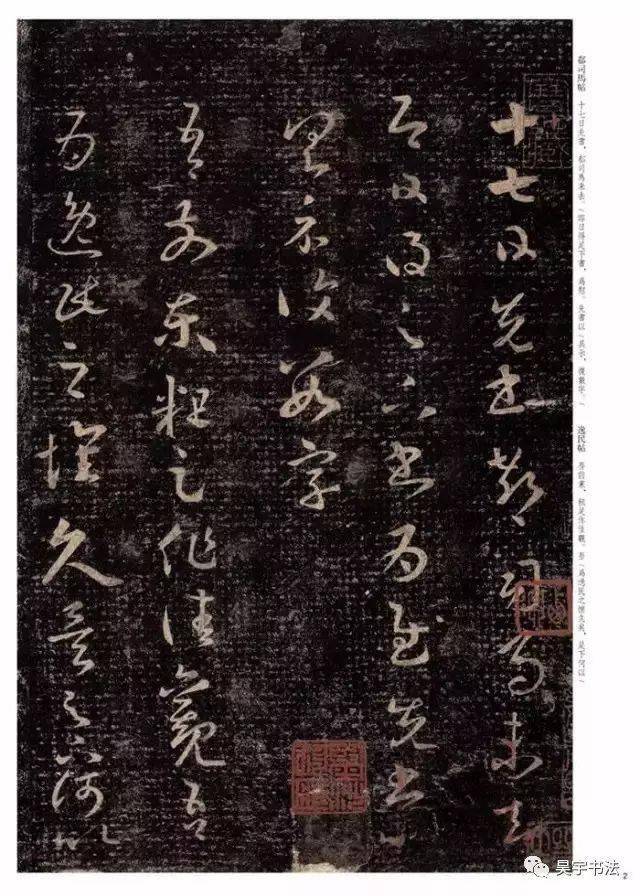 十七日先書郗司馬未去
即日得足下書為慰先書以
具示復數字
吾前東粗足作佳觀吾
為逸民之懷久矣足下何以
郗司馬帖 十七日先書,郗司馬未去。/即日得足下書,爲慰。先書以/具示,復數字。/ 逸民帖 吾前東,粗足作佳觀。吾/爲逸民之懷久矣,足下何以/
昊宇书法
2